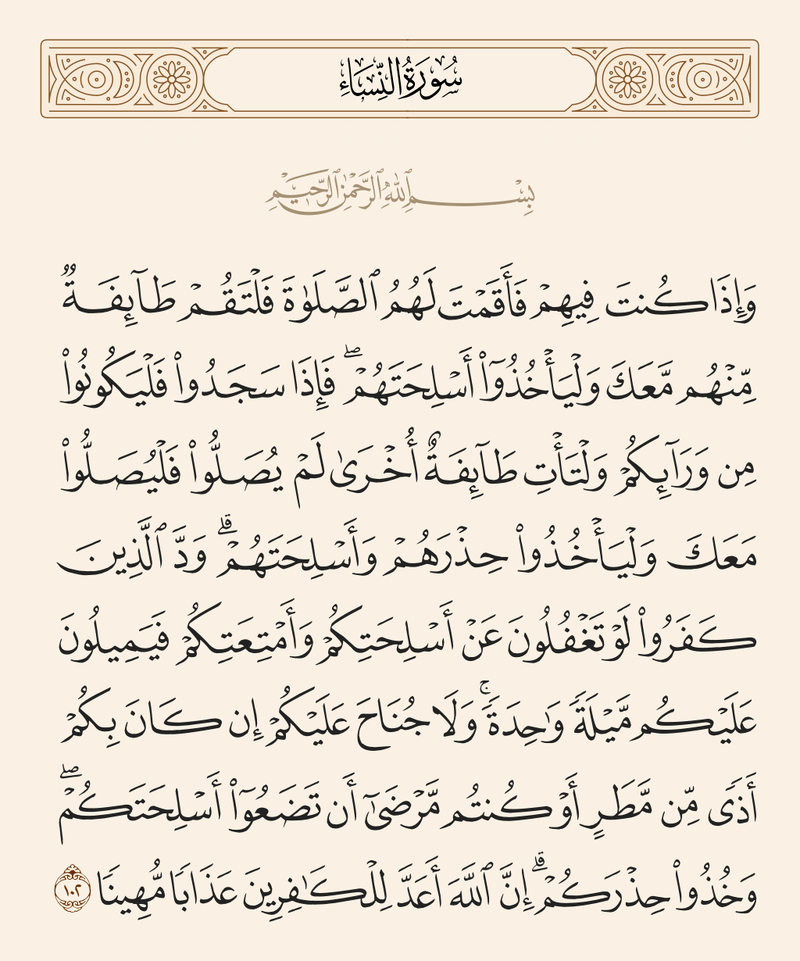 سُورَةُ النِّسَاءِ
بِسْمِ ٱللَّهِ ٱلرَّحْمَٰنِ ٱلرَّحِيمِ
وَإِذَا كُنتَ فِيهِمْ فَأَقَمْتَ لَهُمُ ٱلصَّلَوٰةَ فَلْتَقُمْ طَآئِفَةٌ
مِّنْهُم مَّعَكَ وَلْيَأْخُذُوٓا۟ أَسْلِحَتَهُمْ ۖ فَإِذَا سَجَدُوا۟ فَلْيَكُونُوا۟
مِن وَرَآئِكُمْ وَلْتَأْتِ طَآئِفَةٌ أُخْرَىٰ لَمْ يُصَلُّوا۟ فَلْيُصَلُّوا۟
مَعَكَ وَلْيَأْخُذُوا۟ حِذْرَهُمْ وَأَسْلِحَتَهُمْ ۗ وَدَّ ٱلَّذِينَ
كَفَرُوا۟ لَوْ تَغْفُلُونَ عَنْ أَسْلِحَتِكُمْ وَأَمْتِعَتِكُمْ فَيَمِيلُونَ
عَلَيْكُم مَّيْلَةً وَٰحِدَةً ۚ وَلَا جُنَاحَ عَلَيْكُمْ إِن كَانَ بِكُمْ
أَذًى مِّن مَّطَرٍ أَوْ كُنتُم مَّرْضَىٰٓ أَن تَضَعُوٓا۟ أَسْلِحَتَكُمْ ۖ
وَخُذُوا۟ حِذْرَكُمْ ۗ إِنَّ ٱللَّهَ أَعَدَّ لِلْكَٰفِرِينَ عَذَابًا مُّهِينًا ١٠٢